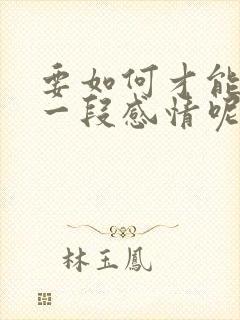 要如何才能
一段感情呢
林玉鳳